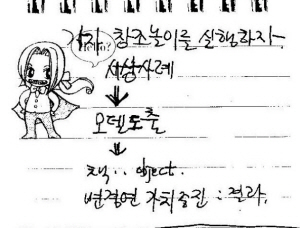 창조놀이를 실행하자
세상사례
모델도출
object.
변경연 가치증진 : 결과.